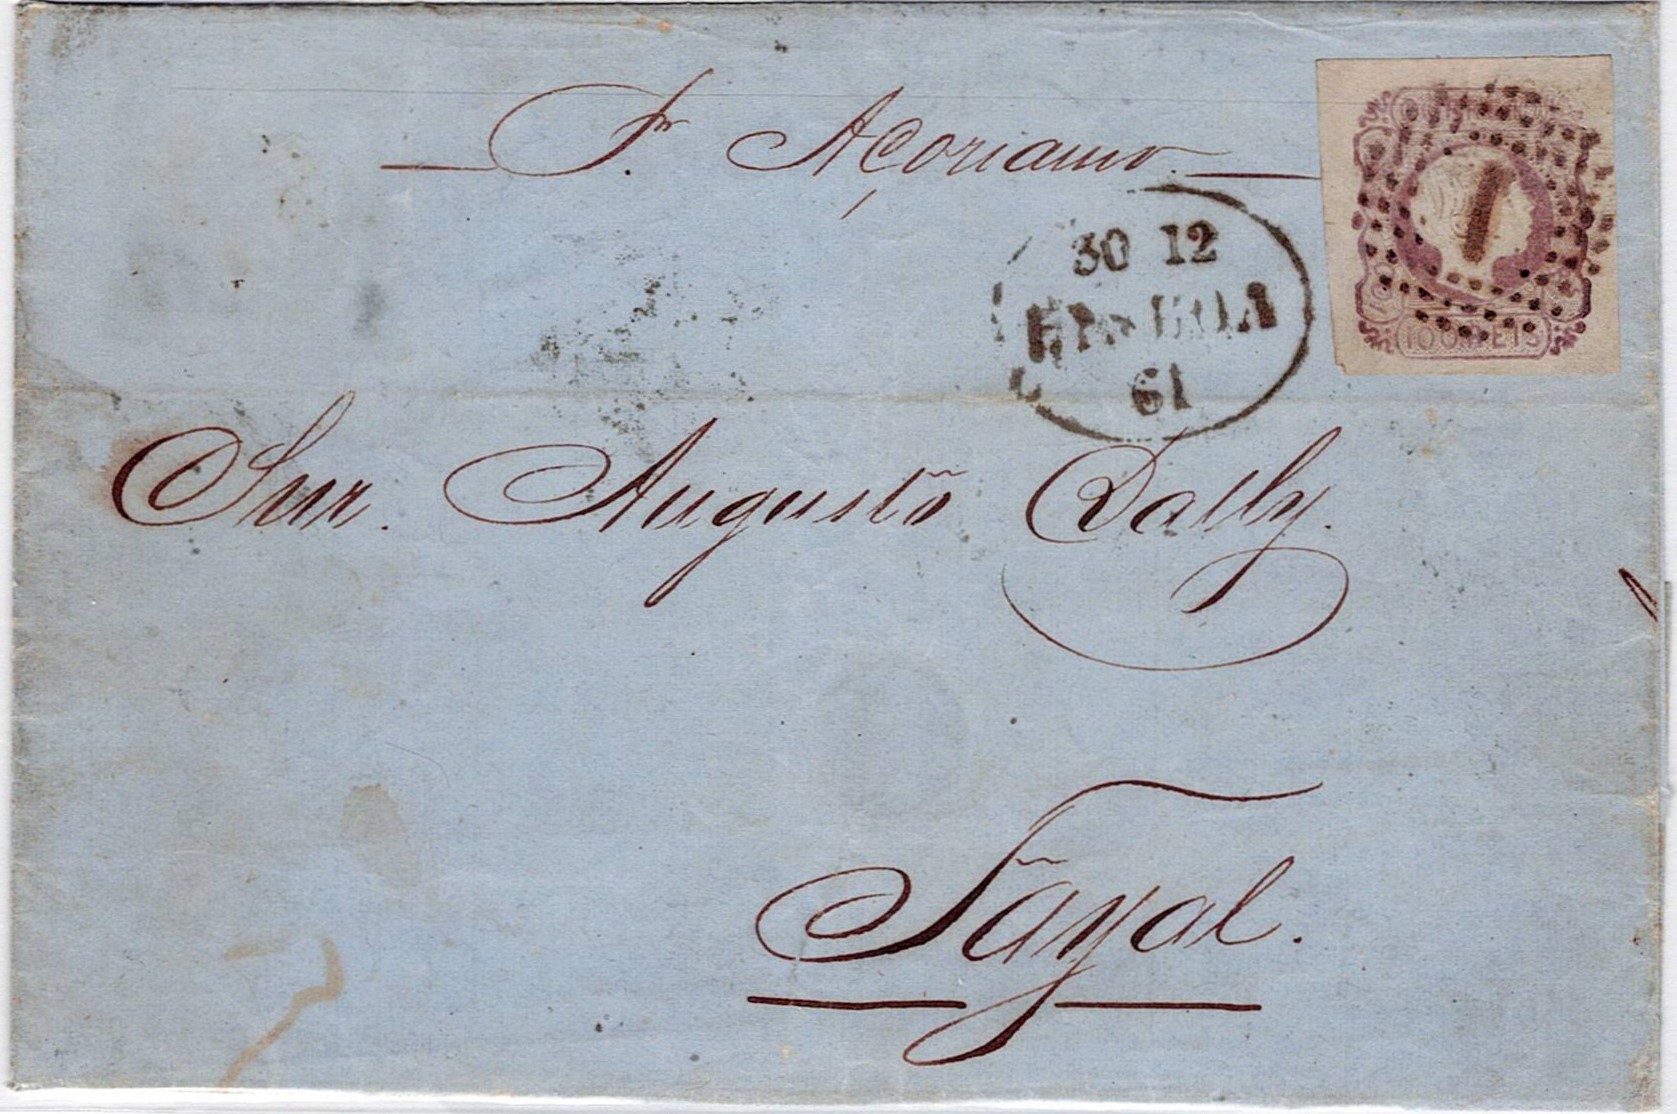 Pr. Açoriano.
30 12
LISBOA
61
1
100 REIS
Snr. Augusto
Fayal.